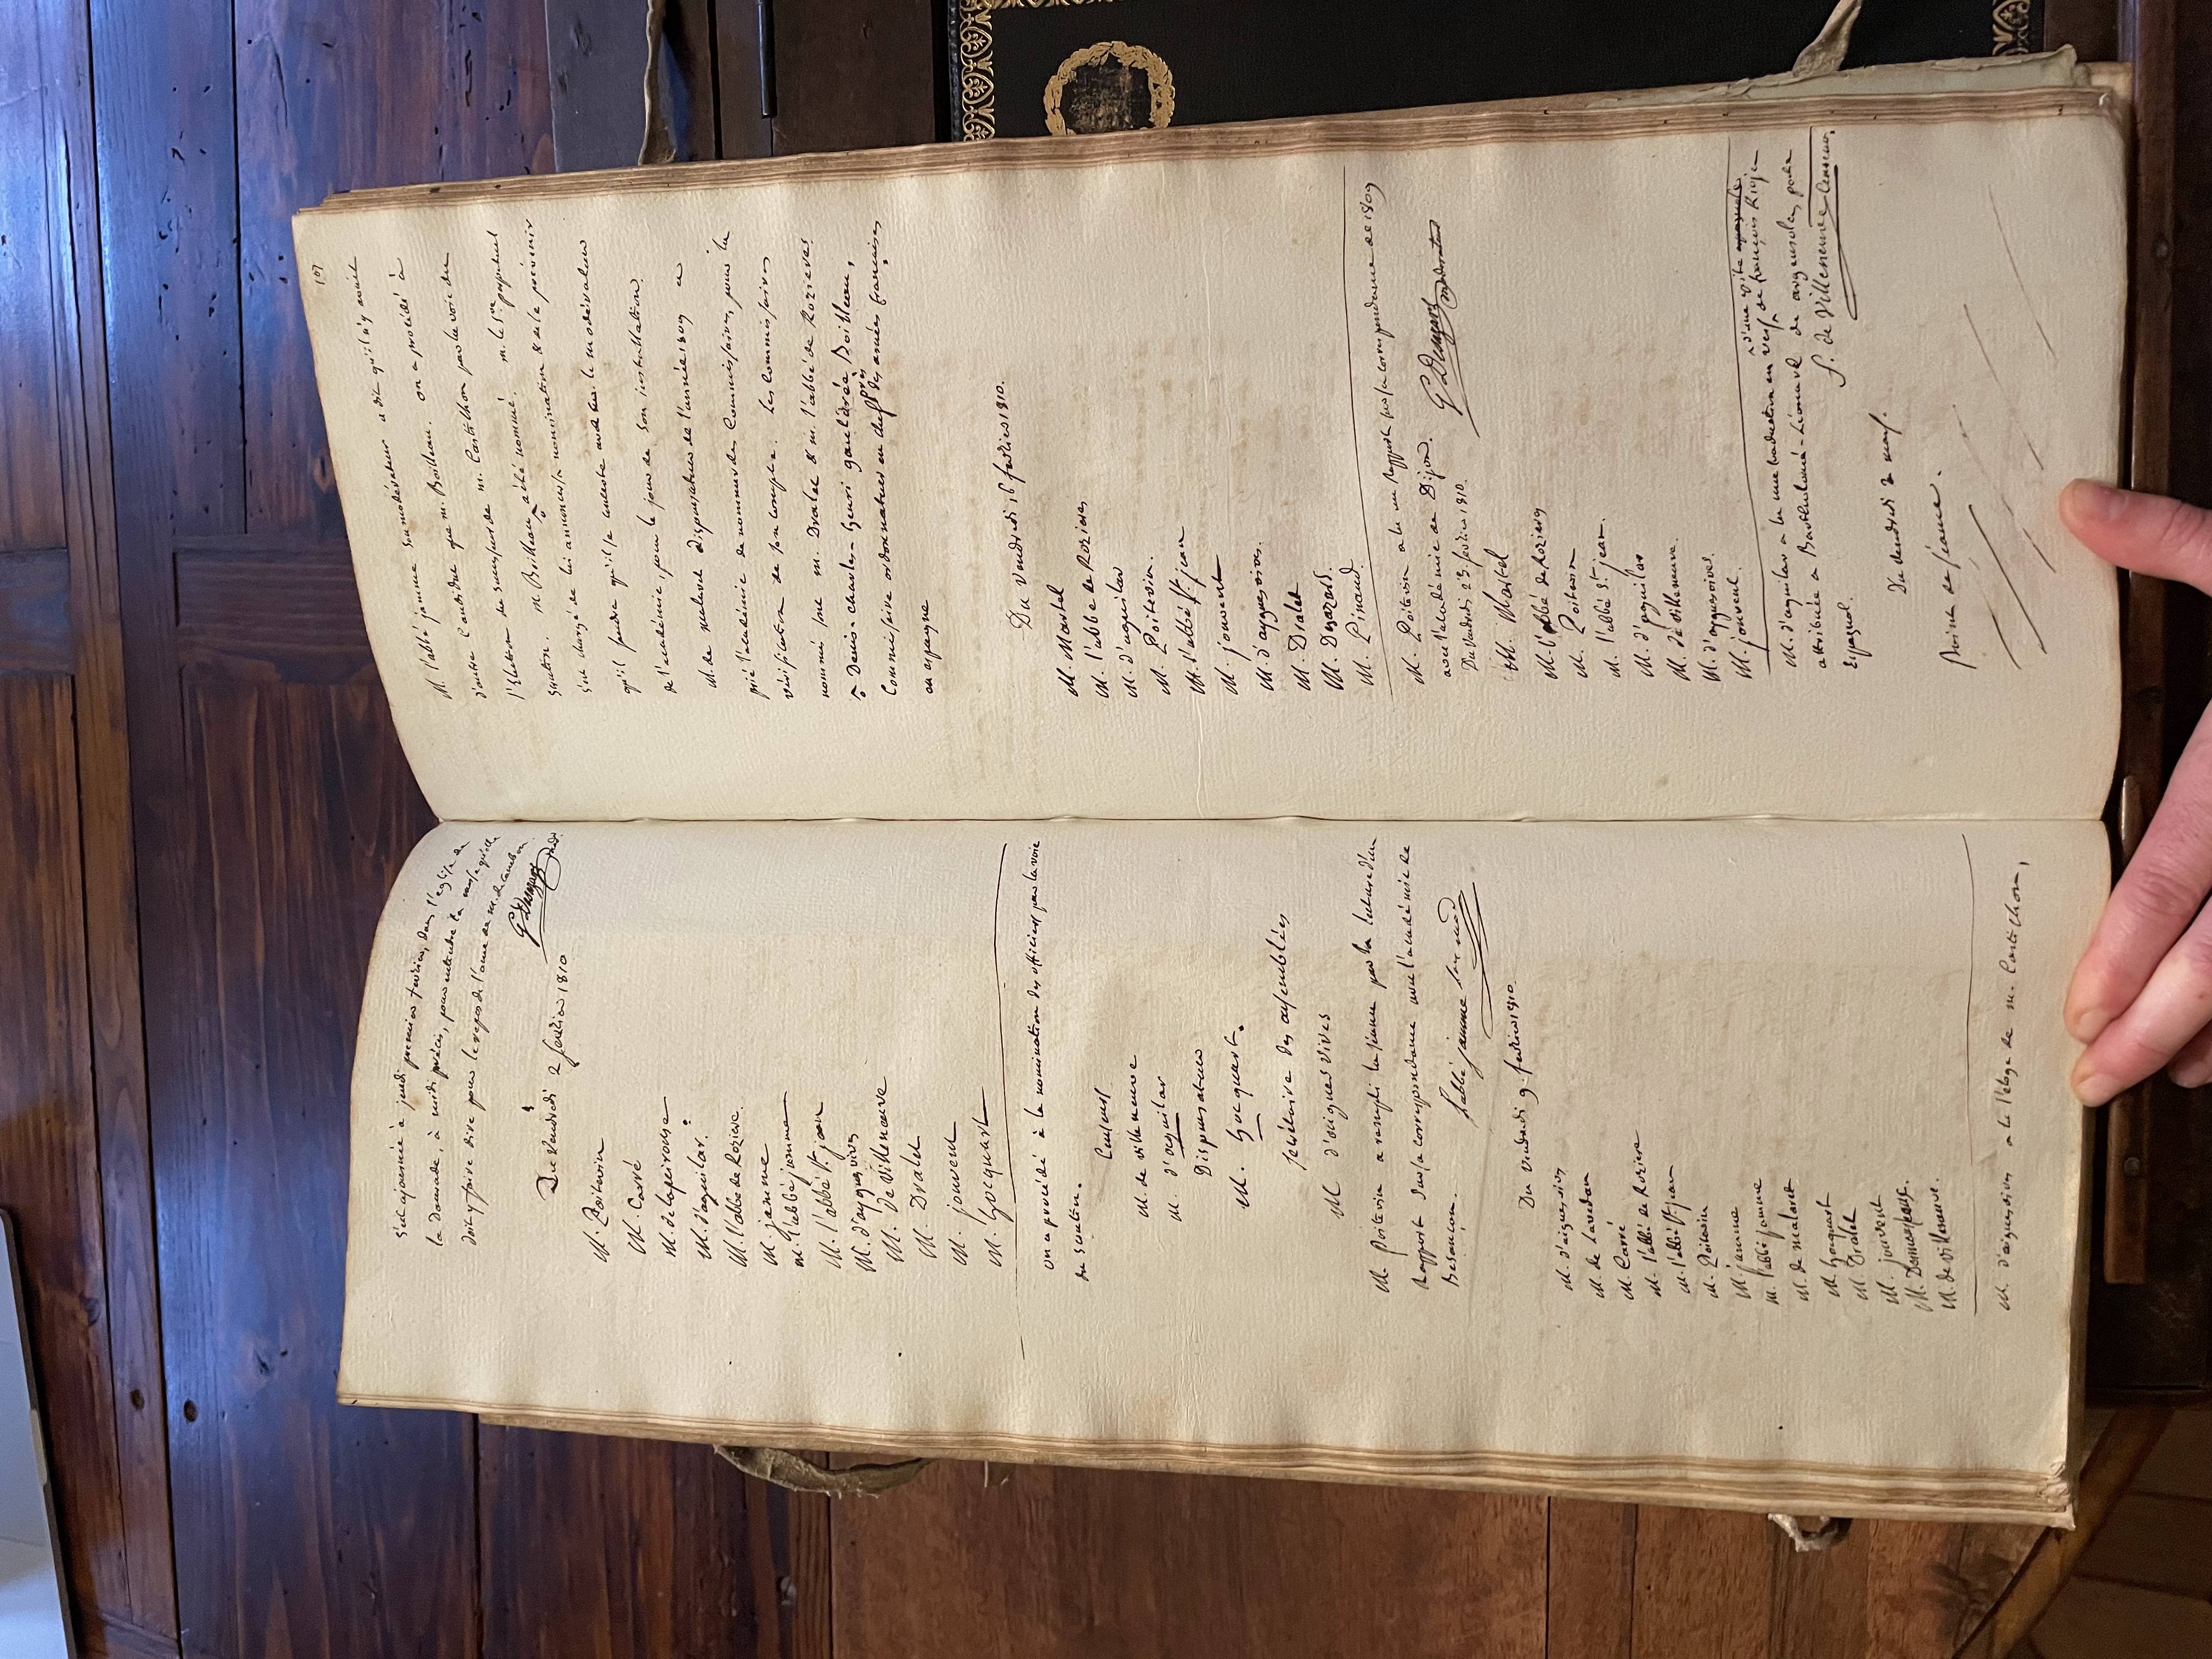 s'est ajournée à jeudi premier fevrier, dans l'eglise de
la Daurade, à midi précis, pour entendre la messe qu'elle
doit y faire dire pour le repos de l'ame de m. de Cambon
Du Vendredi 2 fevrier 1810
M. Poitevin
M. Carré
M. de lapeirouse
M. d'aguilar.
M. l'abbé de Roziere.
M. jamme
M. l'abbé jamme
M. l'abbé St. jean
M. d'ayguesvives
M. De Villeneuve
M. Dralet
M. jouvent
M. hocquart
on a procédé à la nomination des officiers par la voie
du Scrutin.
Censeurs
M. de villeneuve
M. d'aguilar
Dispensateur
M. hocquart.
secrétaire des assemblées
M d'aigues vives
M. Poitevin a rempli la séance par la lecture d'un
Rapport sur la correspondance avec l'académie de
Besancon.
l'abbé jamme
Du vendredi 9. fevrier 1810.
M. d'aiguesvives
M. de Lavedan
M. Carré
M. l'abbé de Roziere
M. l'abbé St jean
M. Poitevin
M. jamme
M. l'abbé jamme
M. de malaret
M. hocquart
M. Dralet
M. jouvent
M. de villeneuve.
M. d'aiguesvives a lu l'éloge de m. Castilhon,
107
M. l'abbé jamme Sousmodérateur a dit qu'il n'y avoit
d'autre Candidat que m. Boilleau. on a procédé à
l'Election du successeur de m. Castilhon par la voie du
Scrutin. M. Boilleau ^ a été nommé. m. le Sre perpétuel
s'est chargé de lui annoncer sa nomination & de le prévenir
qu'il faudra qu'il se concerte avec le modérateur
de l'académie, pour le jour de son installation.
M. de malaret dispensateur de l'année 1809 a
prié l'académie de nommer des Commissaires, pour la
vérification de son compte. Les Commissaires
nommés sont m. Dralet & m. l'abbé de Rozieres
^ Denis-charles-henri gauldrée Boilleau,
Commissaire ordonnateur en chef près des armées francaises
en espagne
Du Vendredi 16 fevrier 1810.
M. Martel
M. l'abbé de Rozieres
M. d'aguilar
M. Poitevin.
M. l'abbé St jean
M. jouvent
M. d'ayguesvives.
M. Dralet
M. Desazars.
M. Pinaud.
M. Poitevin a lu un Rapport sur la correspondance de 1809
avec l'académie de Dijon.
Du Vendredi 23. fevrier 1810.
M. Martel
M. l'abbé de Roziers
M. Poitevin
M. l'abbé St. jean.
M. d'aguilar
M. de Villeneuve.
M. d'ayguesvives.
M. jouvent.
M. d'aguilar a lu une traduction en vers ^ de françois Rioja
attribuée a Barthelemi-Léonard de argensola, poëte
Espagnol.
S. de Villeneuve Censeur
Du Vendredi 2 mars.
Point de séance.